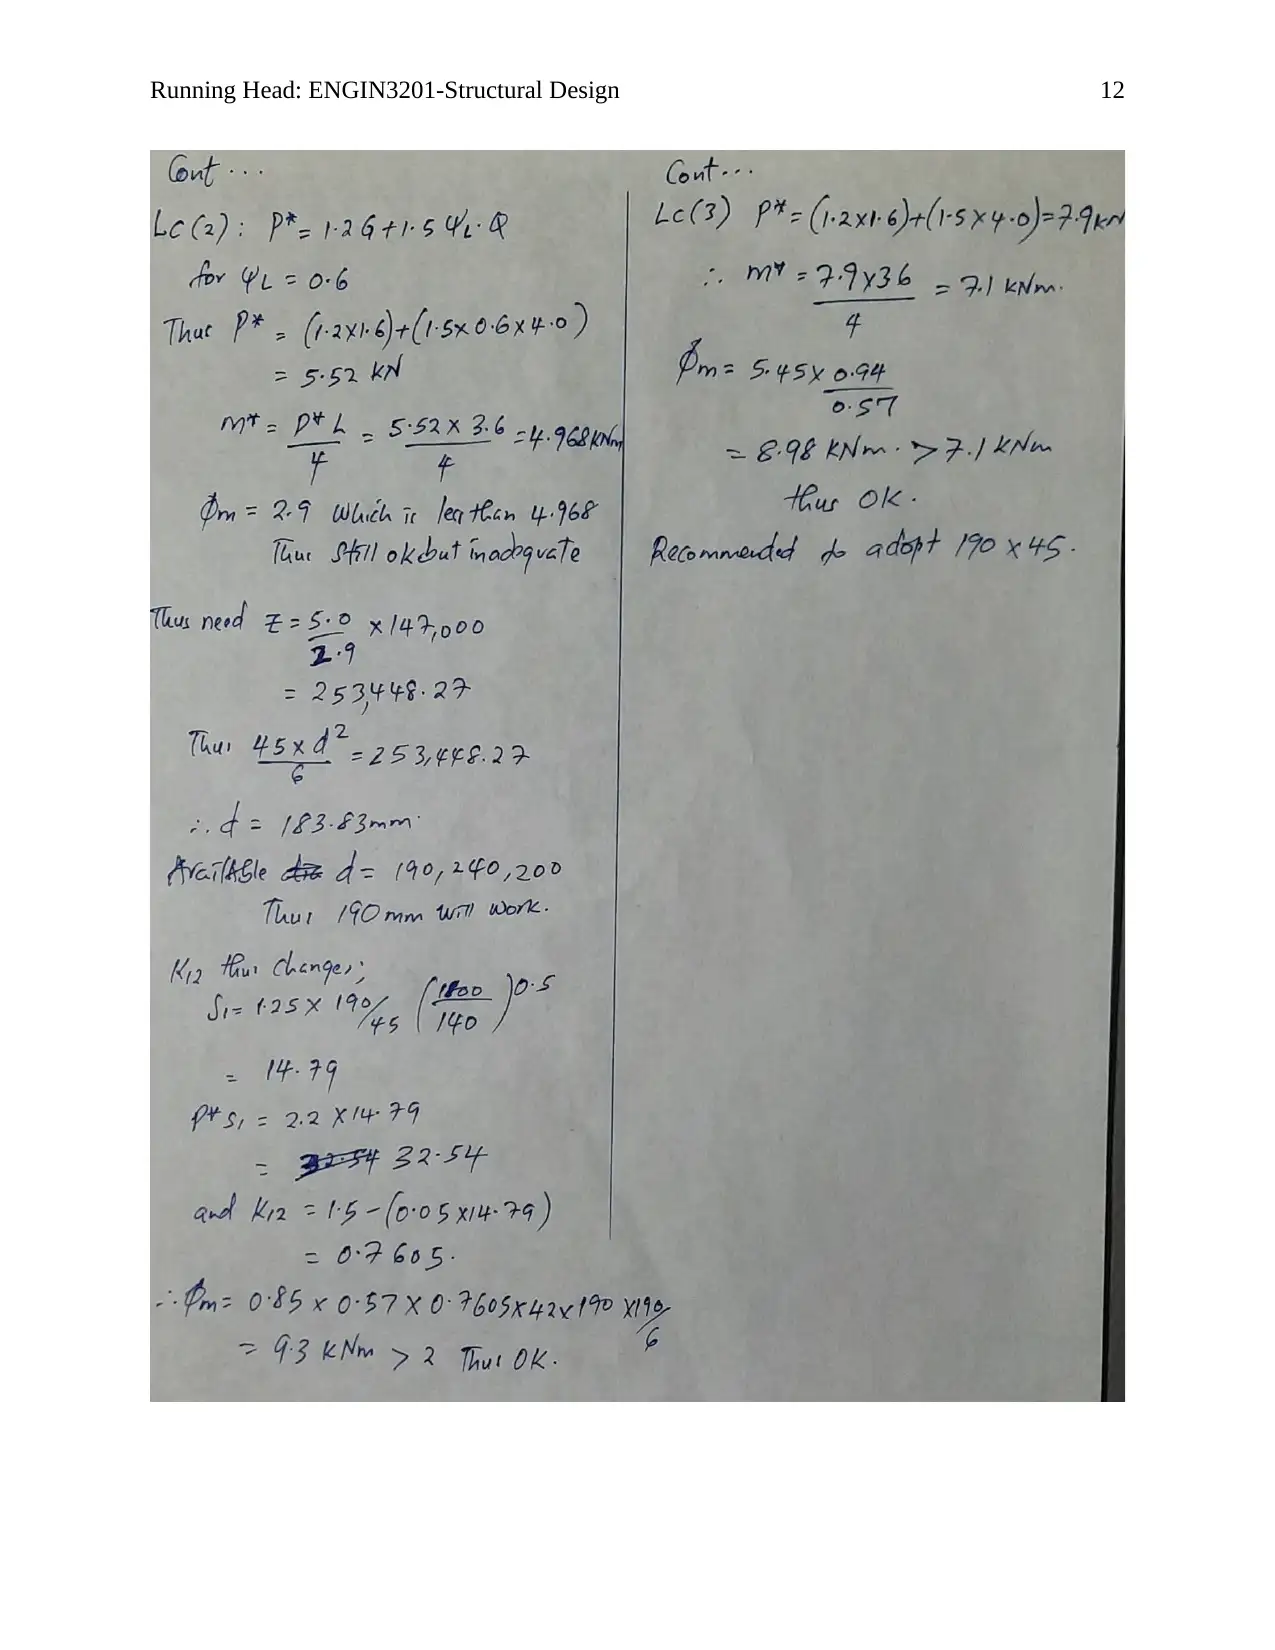 Running Head: ENGIN3201-Structural Design 12
Cont ...
LC (2) : P* = 1.2 G + 1.5 ΨL . Q
for ΨL = 0.6
Thus P* = (1.2x1.6)+(1.5x0.6x4.0)
= 5.52 kN
M* = P* L / 4 = 5.52 x 3.6 / 4 = 4.968 kNm
Øm = 2.9 which is less than 4.968
Thus still ok but inadequate
Thus need Z = 5.0 / 2.9 x 147,000
= 253,448.27
Thus 45 x d² / 6 = 253,448.27
∴ d = 183.83mm.
Available d = 190, 240, 200
Thus 190mm will work.
K12 thus changes;
S1 = 1.25 x 190/45 (1800 / 140)0.5
= 14.79
P* S1 = 2.2 x 14.79
= 32.54 32.54
and K12 = 1.5 - (0.05 x14.79)
= 0.7605.
∴ Øm = 0.85 x 0.57 x 0.7605x42x190 x190/6
= 9.3 kNm > 2 Thus OK.
Cont...
LC (3) P* = (1.2x1.6)+(1.5x4.0)=7.9kN
∴ M* = 7.9 x36 / 4 = 7.1 kNm.
Øm = 5.45 x 0.94 / 0.57
= 8.98 kNm. > 7.1 kNm
thus OK.
Recommended to adopt 190 x 45.